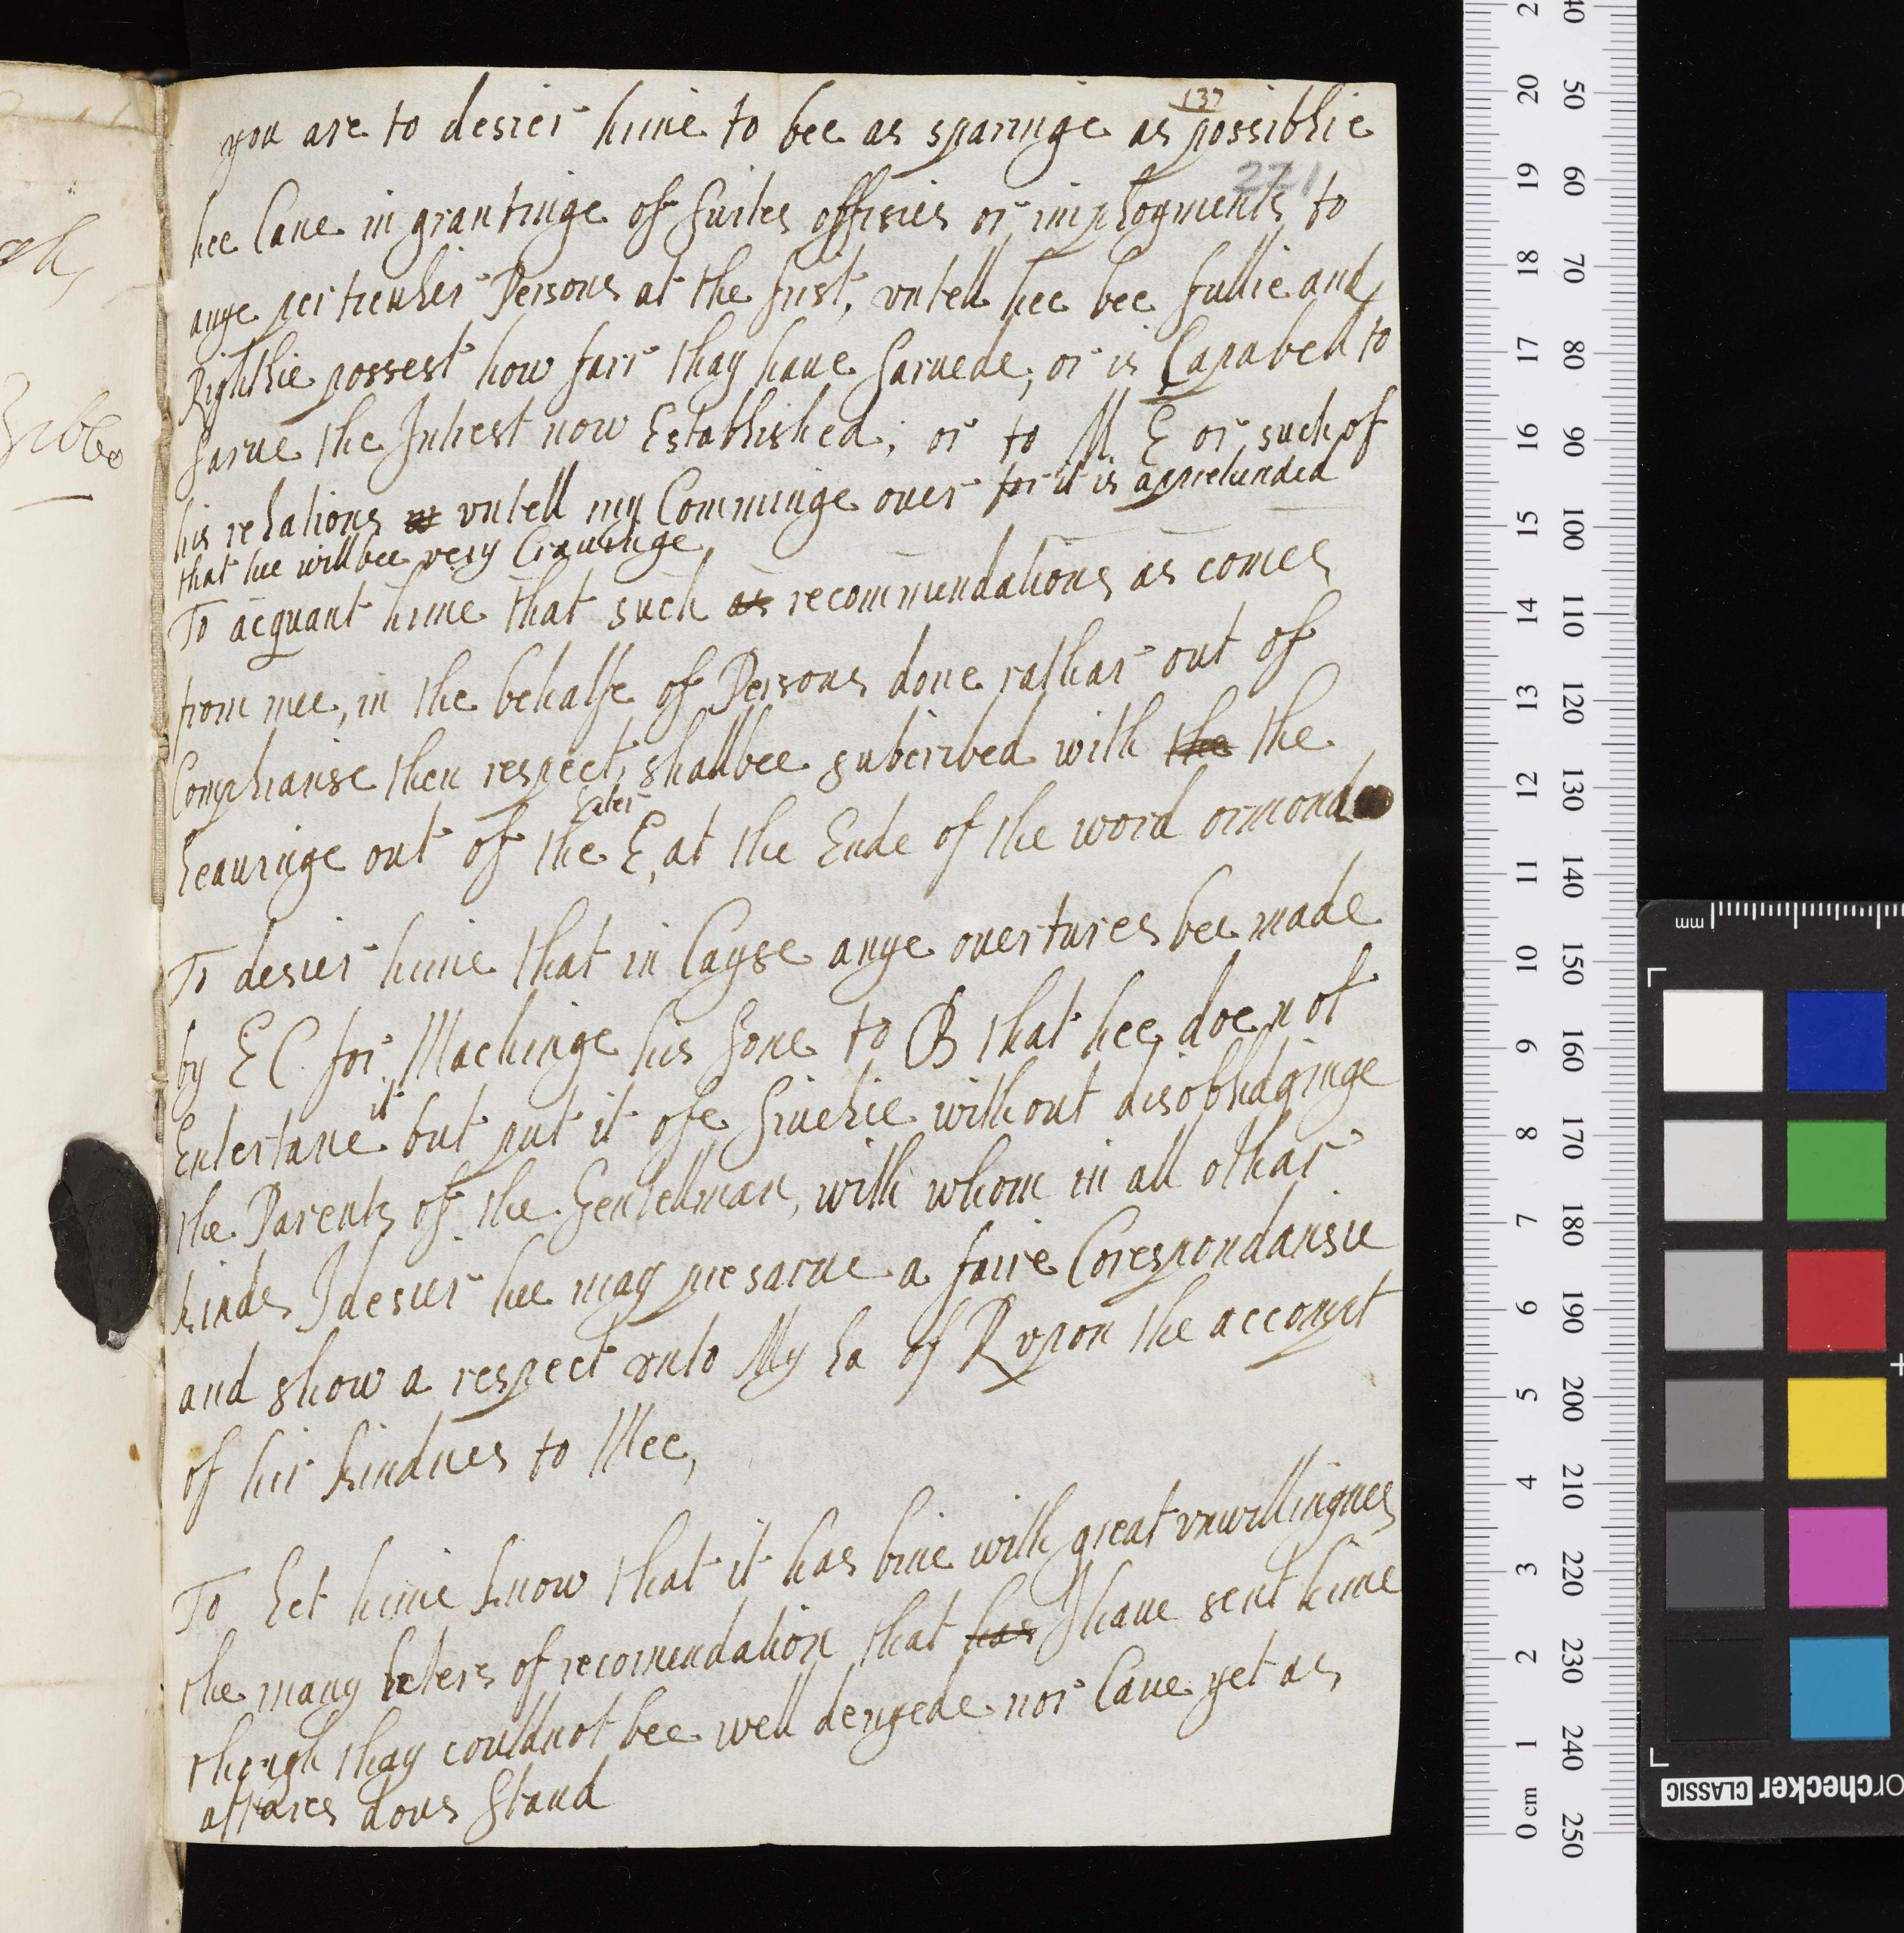 137
you are to desier hime to bee as sparinge as possiblie
271
hee Cane in grantinge of suites offisies or imployments to
anye perticuler Persons at the first, vntell hee bee fullie and
Rightlie possest how farr thay haue sarued, or is Capabell to
sarue the Intrest now Established; or to M E or such of
his relations vntell my Comminge ouer for it is apprehended
that hee will bee very Crauinge
To acquant hime that such as recommendations as comes
from mee, in the behalfe of Persons done rathar out of
Complianse then respect, shall bee subcribed with the the
leauinge out of the later E, at the Ende of the word ormond
To desier hime that in Cayse anye overtures bee made
by E C. for Machinge his sone to B that hee doe not
Entertane it but put it ofe siuelie without disoblidginge
the Parents of the Gentellman, with whom in all othar
kinds I desier hee may presarue a faire Corespondansie
and show a respect vnto My La of R vpon the accompt
of hir kindnes to Mee,
To let hime know that it has bine with great vnwillingnes
the many leters of recomendation that has I haue sent hime
though thay could not bee well denyede nor Cane yet as
affares dous stand